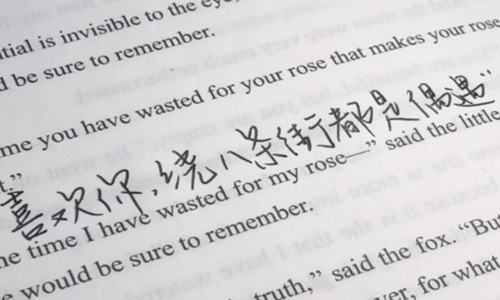 tial is invisible to the eye,
d be sure to remember.
me you have wasted for your rose that makes your rose
t.”
喜欢你，绕八条街都是偶遇
me time I have wasted for my rose—” said the little
e would be sure to remember.
truth,” said the fox. “But
ver, for what